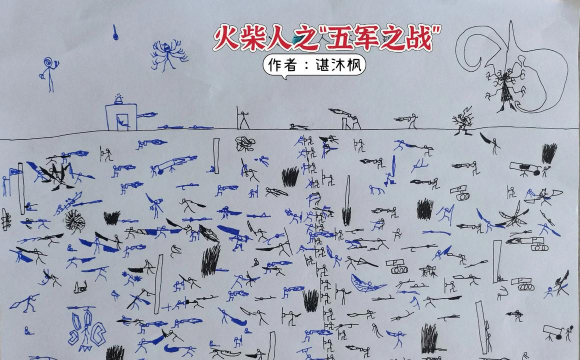 火柴人之“五军之战”
作者：谌沐枫